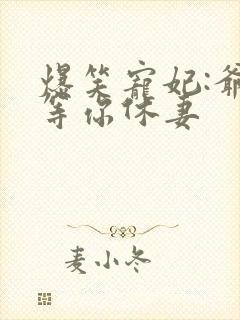 爆笑宠妃:爺
等你休妻
麦小冬